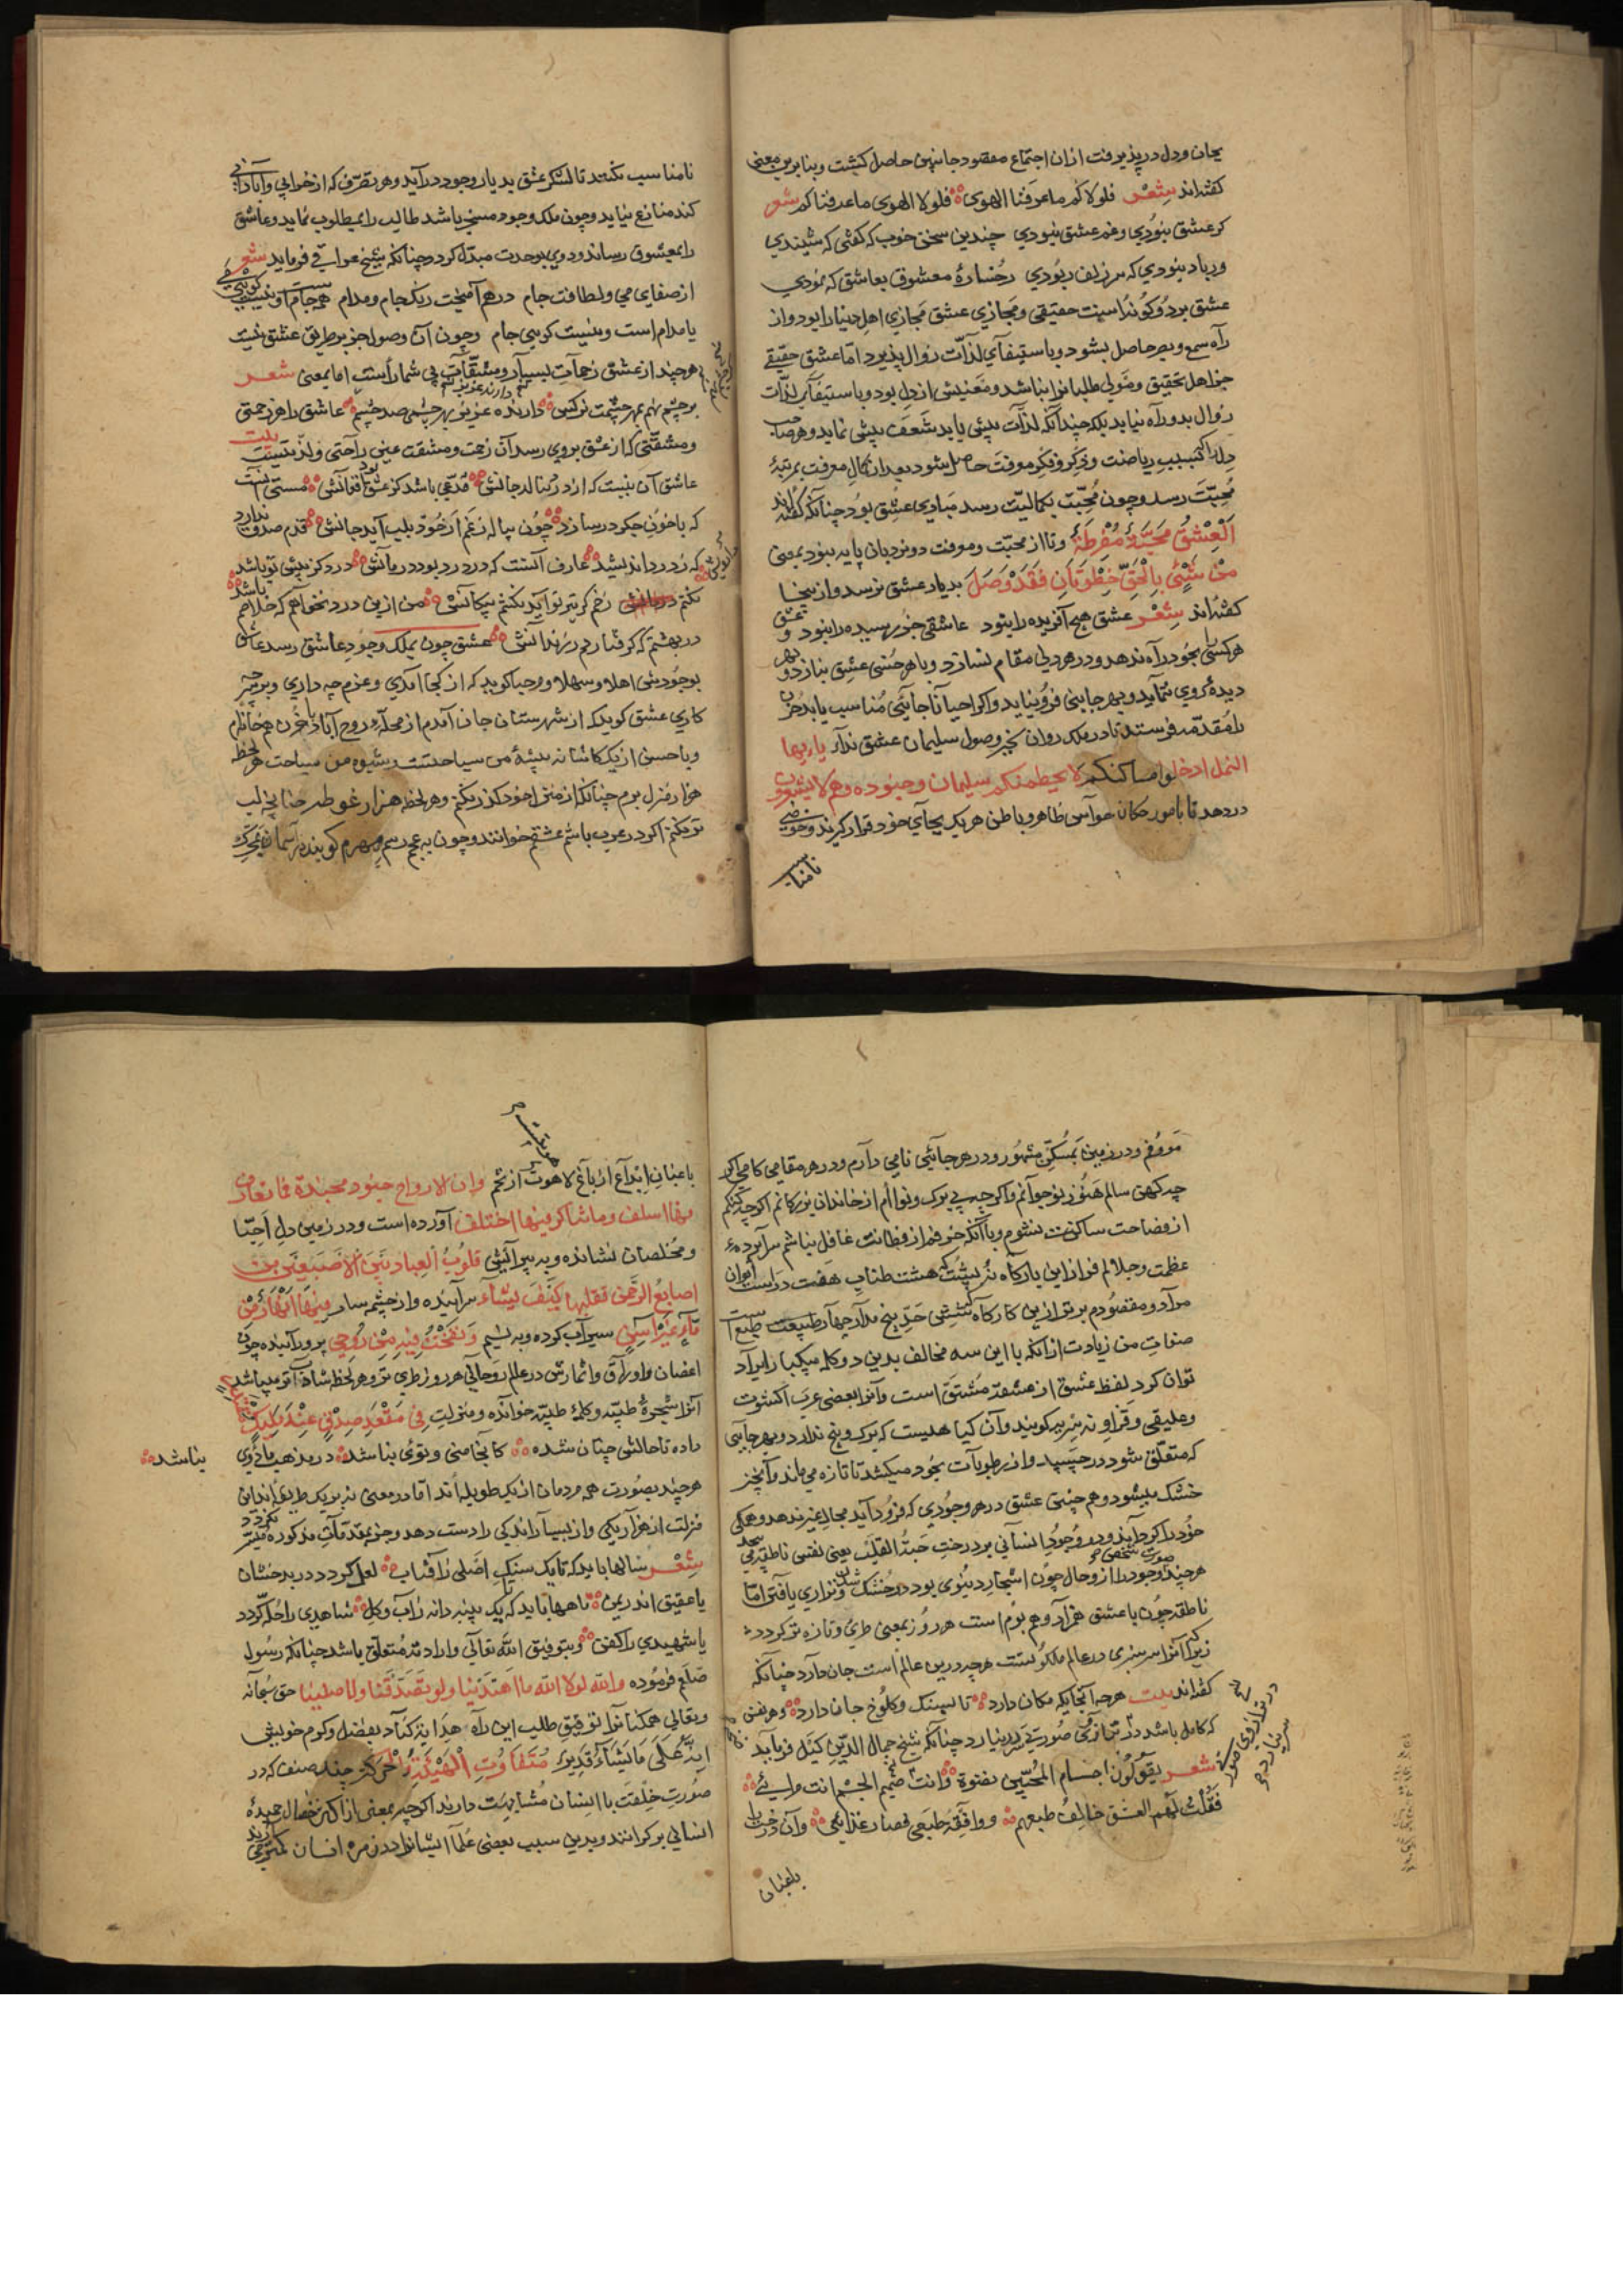 بجان و دل در پذیرفت ازان اجتماع مقصود جانبین حاصل گشت و بنابرین معنی
گفته‌اند شِعْر فلولاکم ماعرفنا الهوی فلولا الهوی ماعرفناکم شعر
گر عشق نبودی و غم عشق نبودی چندین سخن خوب که گفتی که شنیدی
ور باد نبودی که سر زلف ربودی رخسارهٔ معشوق بعاشق که نمودی
عشق بر دو گونه است حقیقی و مجازی عشق مجازی اهل دنیا را بود و از
راه سمع و بصر حاصل بشود و باستیفآی لذّات زوال پذیرد امّا عشق حقیقی
جز اهل تحقیق و مولی طلبانرا نباشد و معنیش از دل بود و باستیفآی لذّات
زوال بدو راه نیابد بلکه چندانکه لذّات بیش یابد شعف بیش نماید و هر صاحب
دل را که بسبب ریاضت و ذکر و فکر معرفت حاصل شود بعد از کمال معرفت بمرتبهٔ
محبّت رسد و چون محبّت بکمالیّت رسد مبادی عشق بود چنانکه گفته‌اند
اَلْعِشْقُ مَحَبَّةٌ مُفْرِطَةٌ و تا از محبّت و معرفت دو نردبان پایه نبود بمعنی
مَنْ بِالْحَقِّ خُطْوَتَانِ فَقَدْ وَصَلَ بدیار عشق نرسد و از ینجا
گفته‌اند شِعْر عشق هیچ آفریده را نبود عاشقی جز رسیده را نبود و عشق
هر کسی را بخود راه ندهد و در هر دلی مقام نسازد و با هر حسنی عشق نبازد و بهر
دیدهٔ روی ننماید و بهر جایی فرو نیاید و اگر احیاناً جایی مناسب یابد حزن
را مقدّمه فرستد تا در ملک روان بخبر وصول سلیمان عشق ندا یا ایها
النمل ادخلوا مساکنکم لا یحطمنکم سلیمان و جنوده و هم لا یشعرون
در دهد تا بامور مکان حواس ظاهر و باطن هر یک بجای خود قرار گیرند و حوضی
نامناسب
نامناسب نکنند تا لشکر عشق بدیار وجود درآید و هر تصرّف که از خرابی و آبادانی
کند منازع نیاید و چون ملک وجود مسخر باشد طالب را بمطلوب نماید و عاشق
را بمعشوق رساند و دوی بوحدت مبدّل گردد چنانکه شیخ عراقی فرماید شعر
از صفای می و لطافت جام درهم آمیخت رنگ جام و مدام همه جام است و نیست گویی می
یا مدام است و نیست گویی جام و چون آن وصول جز بطریق عشق نیست
هرچند از عشق زحمات بسیار و مشقّات بی شمار است اما بمعنی شعر
بر چشم نهم بهر چشمت نرگس دارنده عزیز بهر چشمی صد چشم عاشق را هر زحمتی
و مشقّتی که از عشق بروی رسد آن زحمت و مشقّت عین راحتی و لذّتیست بیت
عاشق آن نیست که از درد بنالد جانش مدّعی باشد کز عشق بود افغانش مستی آنست
که با خون جگر در سازد چون پیاله ز غم ار خود بلب آید جانش قدم صدق ندارد
که ز درد اندیشد عارف آنست که در درد بود درمانش درد کز پیش تو باشد
نکنم درمانش زخم کز تیر تو آید نکنم پیکانش من ازین درد نخواهم که خلاصم باشد
در بهشتم که گرفتارم در زندانش عشق چون بملک وجود عاشق رسد عاشق
بوجودش اهلا و سهلا و مرحبا گوید که از کجا آمدی و عزم چه داری و بر سر چه
کاری عشق گوید که از شهرستان جان آمدم از محلّهٔ روح آباد با حزن هم خانه‌ام
و با حسن از یک کاشانه پیشهٔ من سیاحتست و شیوه من سیاحت هر لحظه
هزار منزل برم چنانکه از منزل خود گذر نکنم و هر لحظه هزار غوطه چنانچه لب
تر نکنم اگر در عرب باشم عشقم خوانند و چون بعجم رسم مهرم گویند در آسمان بمحرّک
معروفم و در زمین بمسکّن مشهور و در هر جایی نامی دارم و در هر مقامی کامی اگر
چه کهن سالم هنوز نوجوانم و اگر چه بی برگ و نواام از خاندان بزرگانم اگر چه کنکم
از فصاحت ساکت نشوم و با آنکه خرفم از فطانت غافل نباشم سراپردهٔ
عظمت و جلالم فراز این بارگاه نه پشت هشت طناب هفت در است ایوان
مراد و مقصودم برتر ازین کارگاه شش حدّ پنج مدار چهار طبیعت سه طبع است
صفات من زیادت از آنکه با این سه مخالف بدین دو کلمه یکبار ایراد
توان کرد لفظ عشق از عشقه مشتق است و آنرا بعضی عرب اکشوت
و علیقی و قراونه نیز گویند و آن گیاهیست که برگ و بیخ ندارد و بهر جایی
که متعلّق شود در چسپد و از رطوبات بخود میکشد تا تازه می ماند و آن چیز
خشک میشود و هم چنین عشق در هر وجودی که فرود آید مجال غیر ندهد و همگی
خود را گرد آرد و در وجود انسانی بر درخت حبّة القلب یعنی نفس ناطقه می پیچد
هرچند وجود را از وحال چون اشجار دنیوی بود در خشک شدن و نزاری یافتن امّا
ناطقه چون با عشق همراه و هم بوم است هر روز بمعنی طری و تازه تر گردد
زیرا که آنرا سرسبزی در عالم ملکوتست هرچه درین عالم است جان دارد چنانکه
گفته‌اند بیت هرچه آنجا یکه مکان دارد تا بسنگ و کلوخ جان دارد و هر نفس
که کامل باشد در ترازوی صورت سر در نیارد چنانکه شیخ جمال الدّین کیل فرماید
شعر یقولون اجسام المحبّین نضوة و انت ضخم الجسم انت مرائی
فقلت لهم العشق خالف طبعهم و وافقه طبعی فصار غذائی و آن درخت را
باغبان
باغبان ابداع از باغ لاهوت از تخم و ان الارواح جنود مجنّدة فما تعارف
منها ائتلف و ما تناکر منها اختلف آورده است و در زمین دل احبّا
و مخلصان نشانده و به پیرایش قلوب العباد بین الاصبعین من
اصابع الرحمن یقلبها کیف یشاء سرآینده و از چشمه سار فِیهَا اَنْهَارٌ مِنْ
مَاءٍ غَیْرِ آسِنٍ سیرآب کرده و به نسیم وَ نَفَخْتُ فِیهِ مِنْ رُوحِی پرورانیده چون
اغصان و اوراق و اثمارش در عالم روحانی هر روز طری تر و هر لحظه شاداب تر میباشد
آنرا شجرهٔ طیّبه و کلمهٔ طیّبه خوانده و منزلت فی مَقْعَدِ صِدْقٍ عِنْدَ مَلِیكٍ
داده تا حالش چنان شده کانجا منی و توی نباشد در مذهب ما دوی نباشد
هرچند بصورت همه مردمان از یک طویله‌اند اما در معنی نه بر یک طریقه‌اند این
منزلت از هزار یکی و از بسیار اندکی را دست دهد و جز بمقدّمات مذکوره میسّر نگردد
شِعْر سالها باید که تا یک سنگ اصلی ز آفتاب لعل گردد در بدخشان
یا عقیق اندر یمن ماهها باید که تا یک پنبه دانه ز آب و گل شاهدی را حلّه گردد
یا شهیدی را کفن و بتوفیق الله تعالی و ارادته متعلّق باشد چنانکه رسول
صلعم فرموده والله لولا الله ما اهتدینا و لو تصدقنا و لا صلینا حق سبحانه
و تعالی همگنانرا توفیق طلب این راه هدایه گناد بفضل و کرم خویش
انه علی ما یشاء قدیر مُتَفَاوُتِ الْهَیْئَةِ الْحَرَكَة چند صنف که در
صورت خلقت با انسان مشابهت دارند اگر چه بمعنی از اکثر خصال حمیدهٔ
انسانی بر کرانند و بدین سبب بعضی علما ایشانرا در زمره انسان نمی شمرند